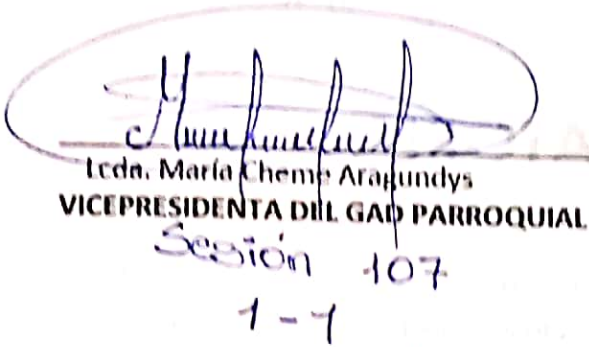 Lcda. María Cheme Aragundys
VICEPRESIDENTA DEL GAD PARROQUIAL
Sesión 107
1-1